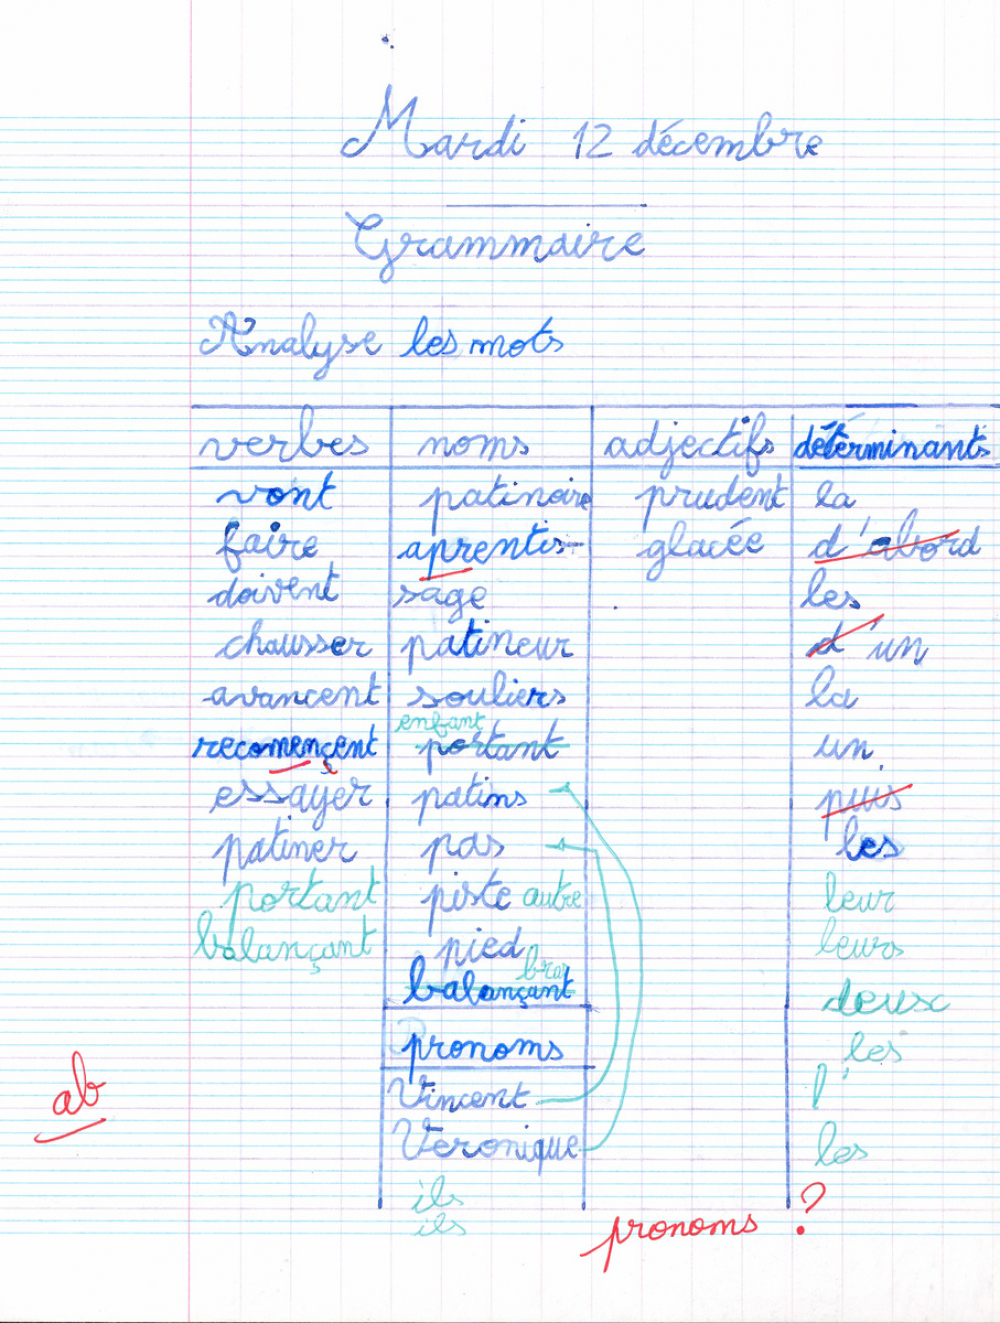 Mardi 12 décembre
Grammaire
Analyse les mots
verbes noms adjectifs déterminants
vont patinoire prudent la
faire aprentis- glacée d'abord
doivent sage les
chausser patineur d'un
avancent souliers la
enfant
recomençent portant un
essayer patins puis
patiner pas les
portant piste autre leur
balançant pied leurs
bras
balançant deux
pronoms les
ab Vincent l'
Veronique les
ils
ils
pronoms ?